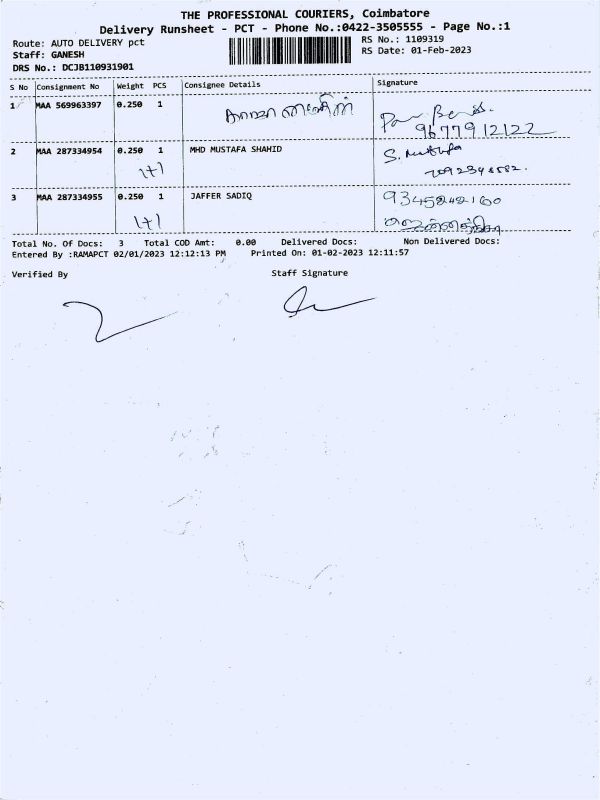 THE PROFESSIONAL COURIERS, Coimbatore
Delivery Runsheet - PCT - Phone No.:0422-3505555 - Page No.:1
Route: AUTO DELIVERY pct
RS No.: 1109319
Staff: GANESH
RS Date: 01-Feb-2023
DRS No.: DCJB110931901
S No Consignment No Weight PCS Consignee Details Signature
1 MAA 569963397 0.250 1
9677912122
2 MAA 287334954 0.250 1 MHD MUSTAFA SHAHID S. Mustafa
1+1
3 MAA 287334955 0.250 1 JAFFER SADIQ
1+1
Total No. Of Docs: 3 Total COD Amt: 0.00 Delivered Docs: Non Delivered Docs:
Entered By :RAMAPCT 02/01/2023 12:12:13 PM Printed On: 01-02-2023 12:11:57
Verified By Staff Signature